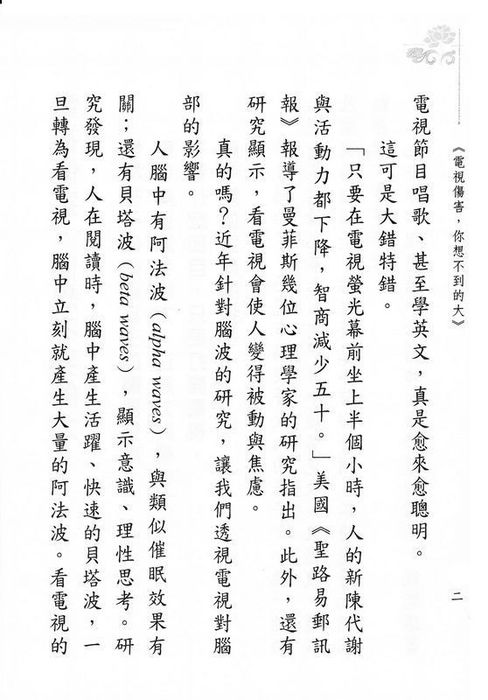 《電視傷害，你想不到的大》
電視節目唱歌、甚至學英文，真是愈來愈聰明。
這可是大錯特錯。
「只要在電視螢光幕前坐上半個小時，人的新陳代謝
與活動力都下降，智商減少五十。」美國《聖路易郵訊
報》報導了曼菲斯幾位心理學家的研究指出。此外，還有
研究顯示，看電視會使人變得被動與焦慮。
真的嗎？近年針對腦波的研究，讓我們透視電視對腦
部的影響。
人腦中有阿法波（alpha waves），與類似催眠效果有
關；還有貝塔波（beta waves），顯示意識、理性思考。研
究發現，人在閱讀時，腦中產生活躍、快速的貝塔波，一
旦轉為看電視，腦中立刻就產生大量的阿法波。看電視的
二